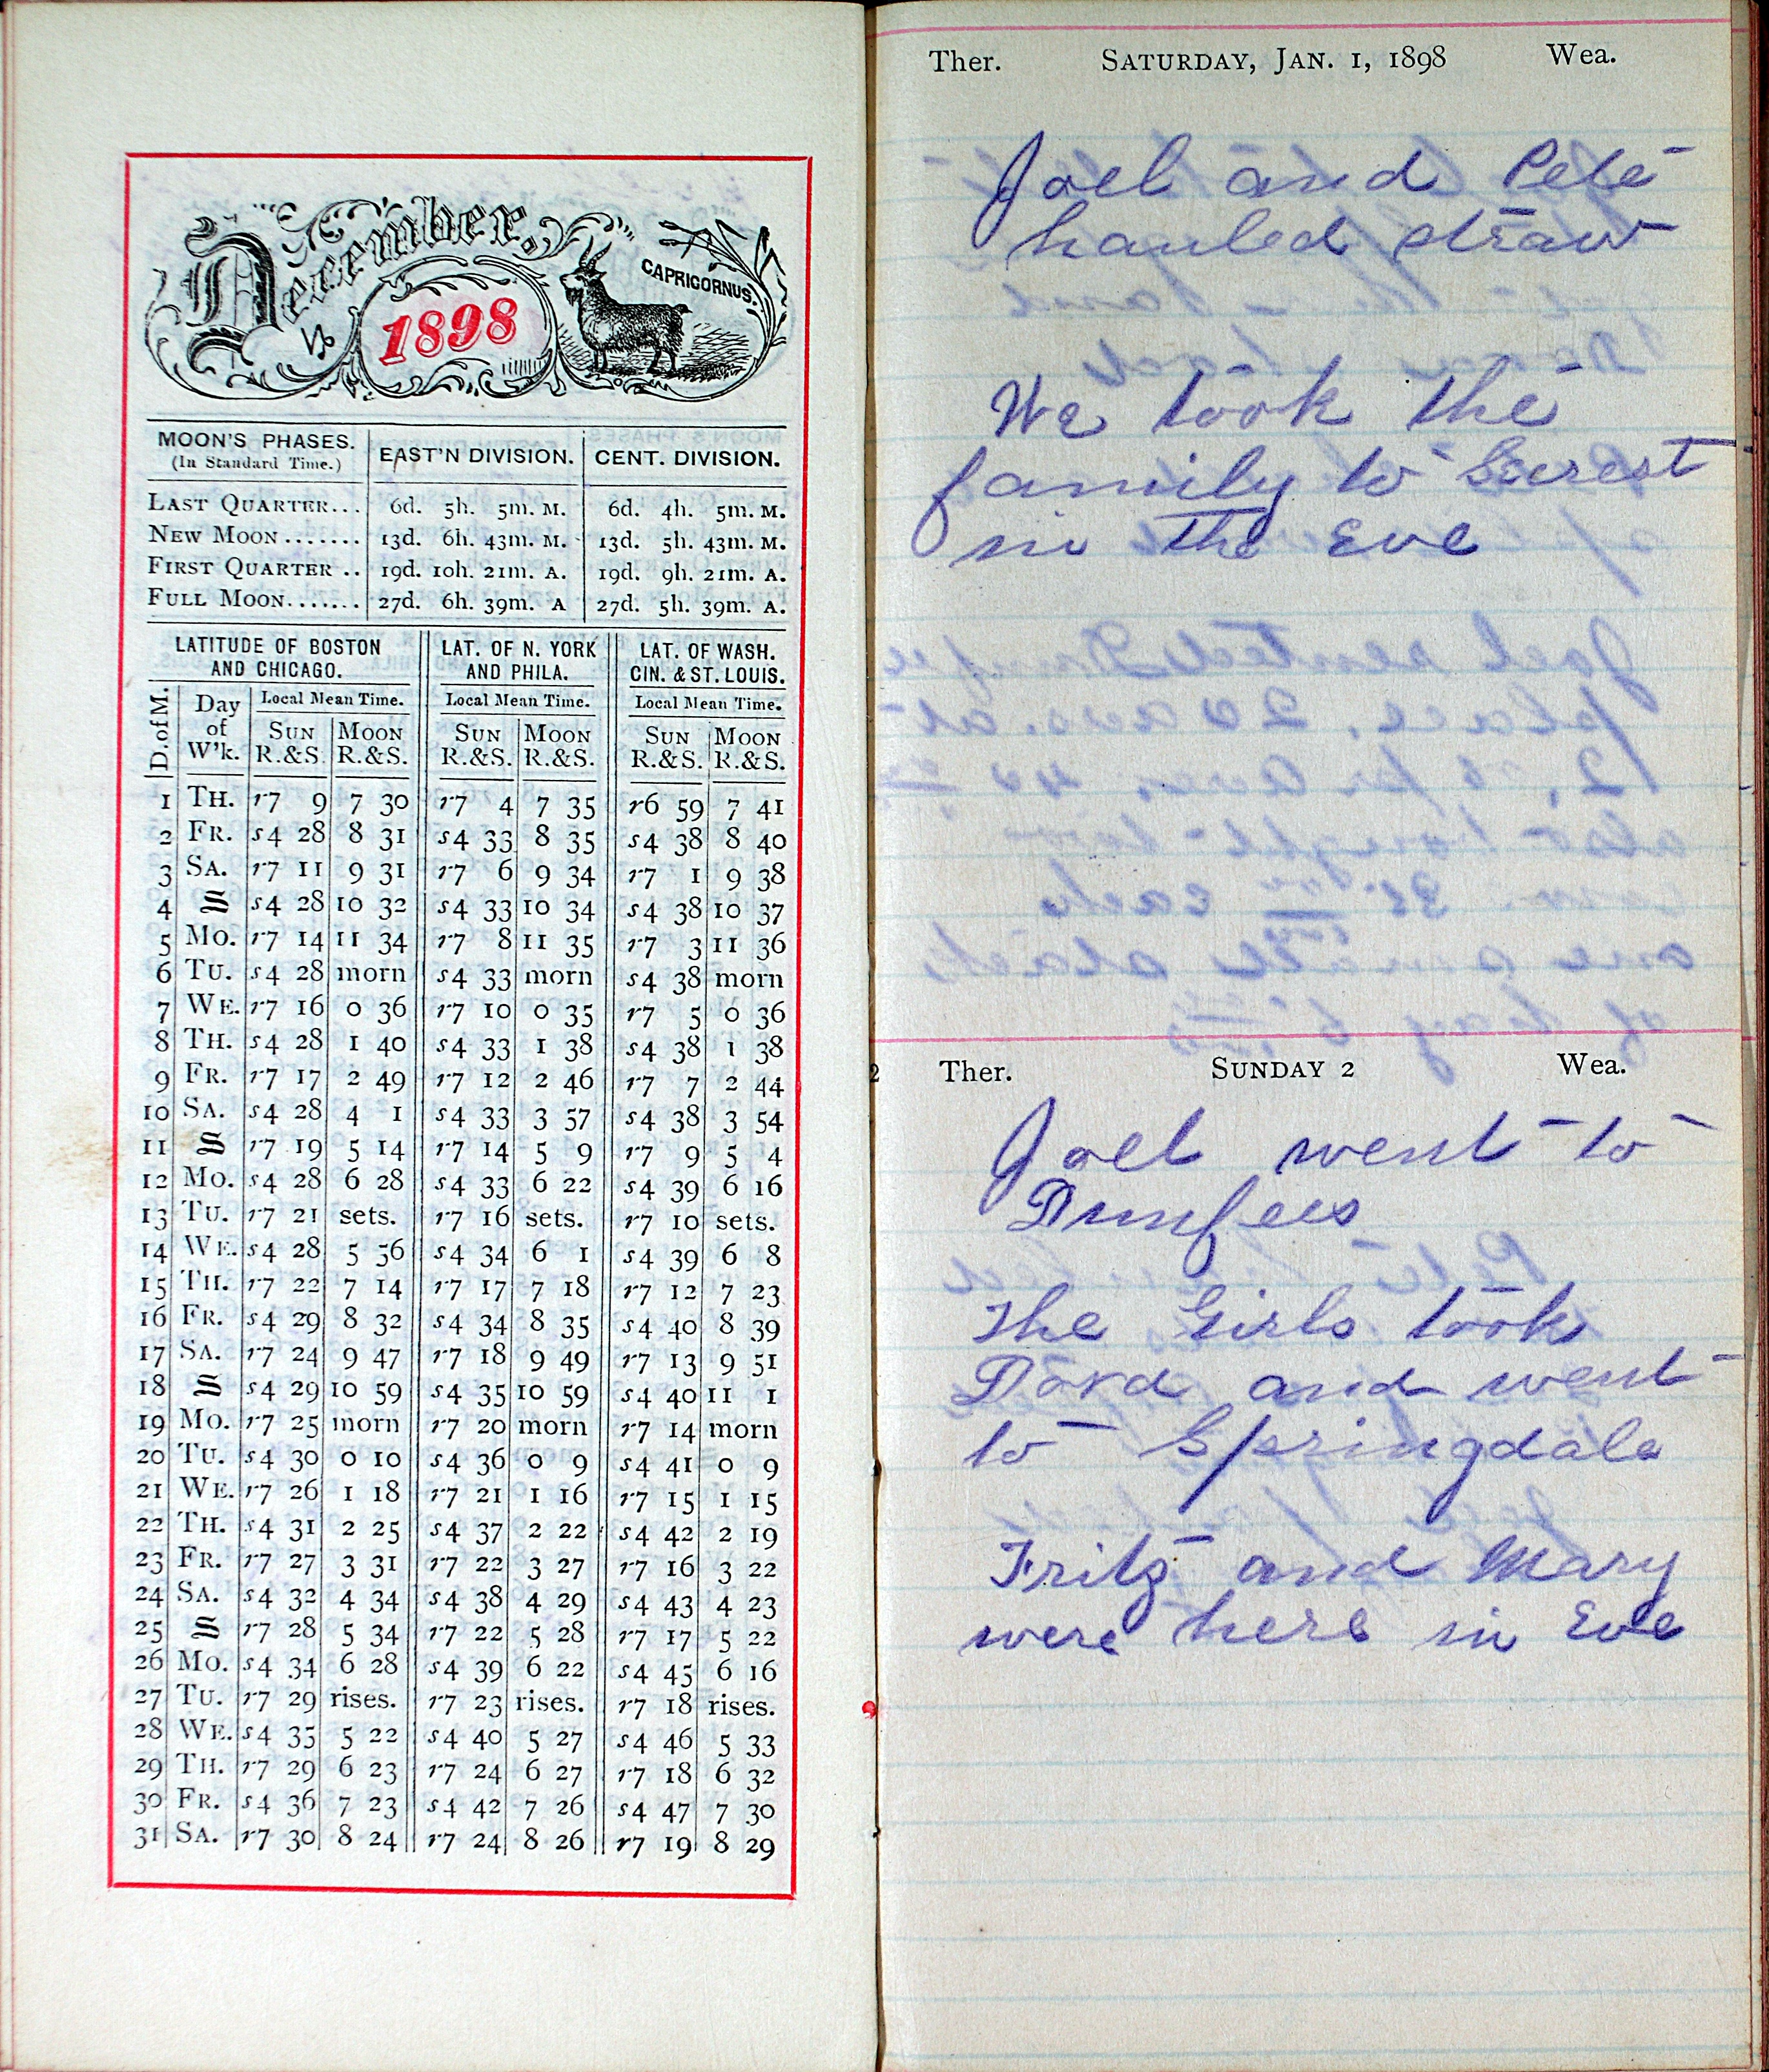 December,
1898
CAPRICORNUS.
MOON'S PHASES. (In Standard Time.) EAST'N DIVISION. CENT. DIVISION.
LAST QUARTER... 6d. 5h. 5m. M. 6d. 4h. 5m. M.
NEW MOON....... 13d. 6h. 43m. M. 13d. 5h. 43m. M.
FIRST QUARTER .. 19d. 10h. 21m. A. 19d. 9h. 21m. A.
FULL MOON....... 27d. 6h. 39m. A 27d. 5h. 39m. A.
LATITUDE OF BOSTON AND CHICAGO. LAT. OF N. YORK AND PHILA. LAT. OF WASH. CIN. & ST. LOUIS.
D. of M. Day of W'k. Local Mean Time. Local Mean Time. Local Mean Time.
SUN R.&S. MOON R.&S. SUN R.&S. MOON R.&S. SUN R.&S. MOON R.&S.
1 TH. r7 9 7 30 r7 4 7 35 r6 59 7 41
2 FR. s4 28 8 31 s4 33 8 35 s4 38 8 40
3 SA. r7 11 9 31 r7 6 9 34 r7 1 9 38
4 S s4 28 10 32 s4 33 10 34 s4 38 10 37
5 MO. r7 14 11 34 r7 8 11 35 r7 3 11 36
6 TU. s4 28 morn s4 33 morn s4 38 morn
7 WE. r7 16 0 36 r7 10 0 35 r7 5 0 36
8 TH. s4 28 1 40 s4 33 1 38 s4 38 1 38
9 FR. r7 17 2 49 r7 12 2 46 r7 7 2 44
10 SA. s4 28 4 1 s4 33 3 57 s4 38 3 54
11 S r7 19 5 14 r7 14 5 9 r7 9 5 4
12 MO. s4 28 6 28 s4 33 6 22 s4 39 6 16
13 TU. r7 21 sets. r7 16 sets. r7 10 sets.
14 WE. s4 28 5 56 s4 34 6 1 s4 39 6 8
15 TH. r7 22 7 14 r7 17 7 18 r7 12 7 23
16 FR. s4 29 8 32 s4 34 8 35 s4 40 8 39
17 SA. r7 24 9 47 r7 18 9 49 r7 13 9 51
18 S s4 29 10 59 s4 35 10 59 s4 40 11 1
19 MO. r7 25 morn r7 20 morn r7 14 morn
20 TU. s4 30 0 10 s4 36 0 9 s4 41 0 9
21 WE. r7 26 1 18 r7 21 1 16 r7 15 1 15
22 TH. s4 31 2 25 s4 37 2 22 s4 42 2 19
23 FR. r7 27 3 31 r7 22 3 27 r7 16 3 22
24 SA. s4 32 4 34 s4 38 4 29 s4 43 4 23
25 S r7 28 5 34 r7 22 5 28 r7 17 5 22
26 MO. s4 34 6 28 s4 39 6 22 s4 45 6 16
27 TU. r7 29 rises. r7 23 rises. r7 18 rises.
28 WE. s4 35 5 22 s4 40 5 27 s4 46 5 33
29 TH. r7 29 6 23 r7 24 6 27 r7 18 6 32
30 FR. s4 36 7 23 s4 42 7 26 s4 47 7 30
31 SA. r7 30 8 24 r7 24 8 26 r7 19 8 29
Ther. SATURDAY, JAN. 1, 1898 Wea.
Joel and Pete
hauled straw
We took the
family to
in the Eve
2 Ther. SUNDAY 2 Wea.
Joel went to
Dunfees
The Girls took
and went
to Springdale
Fritz and Mary
were here in Eve